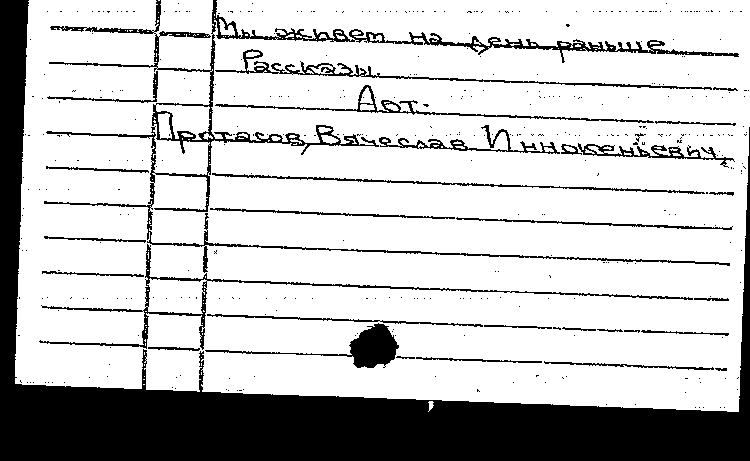 Мы живем на день раньше.
Рассказы.
Авт.
Протасов, Вячеслав Иннокеньевич.